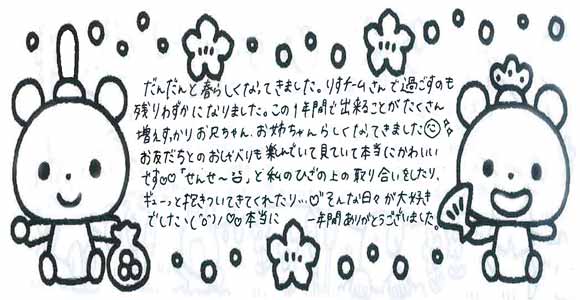 だんだんと春らしくなってきました。りすチームさんで過ごすのも
残りわずかになりました。この1年間で出来ることがたくさん
増えすっかりお兄ちゃん、お姉ちゃんらしくなってきました
お友だちとのおしゃべりも楽しんでいて見ていて本当にかわいい
です♡♡「せんせ〜」と私のひざの上の取り合いをしたり、
ギューっと抱きついてきてくれたり…♡そんな日々が大好き
でした＼(^o^)/♡♡本当に 一年間ありがとうございました。